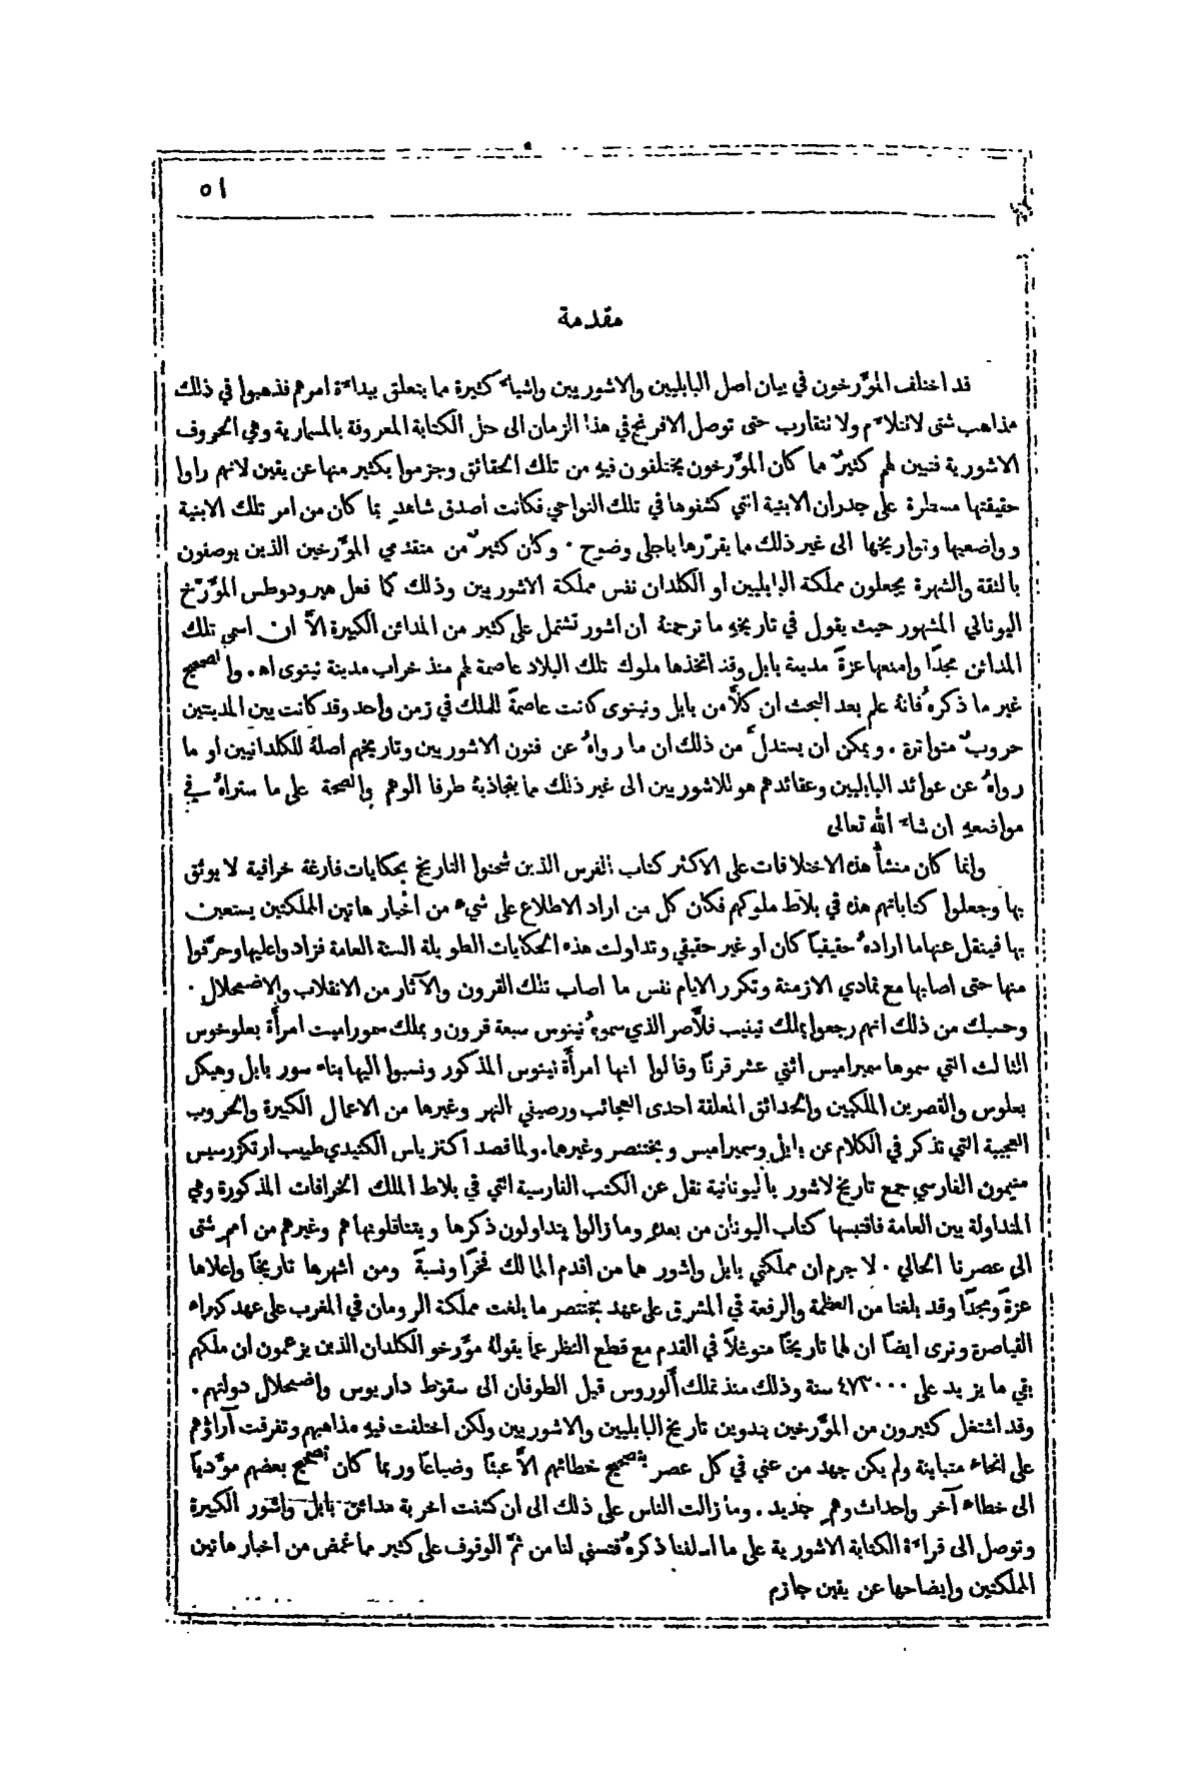 ٥١
مقدمة
قد اختلف المؤَرخون في بيان اصل البابليين والاشوريين واشياءَ كثيرة مما يتعلق ببداءة امرهم فذهبوا في ذلك
مذاهب شتى لا تتلاءَم ولا تتقارب حتى توصل الافرنج في هذا الزمان الى حل الكتابة المعروفة بالمسمارية وهي الحروف
الاشورية فتبين لهم كثيرٌ مما كان المؤَرخون يختلفون فيهِ من تلك الحقائق وجزموا بكثير منها عن يقين لانهم راوا
حقيقتها مسطرة على جدران الابنية التي كشفوها في تلك النواحي فكانت اصدق شاهدٍ بما كان من امر تلك الابنية
وواضعيها وتواريخها الى غير ذلك مما يقرّرها باجلى وضوح ٠ وكان كثيرٌ من متقدمي المؤَرخين الذين يوصفون
بالثقة والشهرة يجعلون مملكة البابليين او الكلدان نفس مملكة الاشوريين وذلك كما فعل هيرودوطس المؤَرّخ
اليوناني المشهور حيث يقول في تاريخهِ ما ترجمتهُ ان اشور تشتمل على كثير من المدائن الكبيرة الاَّ ان اسمى تلك
المدائن مجدًا وامنعها عزةً مدينة بابل وقد اتخذها ملوك تلك البلاد عاصمة لهم منذ خراب مدينة نينوى اه٠ والصحيح
غير ما ذكرهُ فانهُ علم بعد البحث ان كلاًّ من بابل ونينوى كانت عاصمةً للملك في زمن واحد وقد كانت بين المدينتين
حروبٌ متواترة ٠ ويمكن ان يستدلَّ من ذلك ان ما رواهُ عن فنون الاشوريين وتاريخهم اصلهُ للكلدانيين او ما
رواهُ عن عوائد البابليين وعقائدهم هو للاشوريين الى غير ذلك مما يتجاذبهُ طرفا الوهم والصحة على ما ستراهُ في
مواضعهِ ان شاءَ الله تعالى
وانما كان منشأُ هذه الاختلافات على الاكثر كتاب الفرس الذين شحنوا التاريخ بحكايات فارغة خرافية لا يوثق
بها وجعلوا كتاباتهم هذه في بلاط ملوكهم فكان كل من اراد الاطلاع على شيءٍ من اخبار هاتين المملكتين يستعين
بها فينقل عنها ما ارادهُ حقيقيًا كان او غير حقيقي وتداولت هذه الحكايات الطويلة السنة العامة فزادوا عليها وحرّفوا
منها حتى اصابها مع تمادي الازمنة وتكرر الايام نفس ما اصاب تلك القرون والآثار من الانقلاب والاضمحلال ٠
وحسبك من ذلك انهم رجعوا بملك تينيب فلاَّصر الذي سموهُ نينوس سبعة قرون وبملك سموراميت امرأَة بعلوخوس
الثالث التي سموها سميراميس اثني عشر قرنًا وقالوا انها امرأَة نينوس المذكور ونسبوا اليها بناءَ سور بابل وهيكل
بعلوس والقصرين الملكيين والحدائق المعلقة احدى العجائب ورصيفي النهر وغيرها من الاعمال الكبيرة والحروب
العجيبة التي تذكر في الكلام عن بابل وسميراميس وبختنصر وغيرها٠ ولما قصد اكتزياس الكنيدي طبيب ارتكزرسيس
منيمون الفارسي جمع تاريخ لاشور باليونانية نقل عن الكتب الفارسية التي في بلاط الملك الخرافات المذكورة وهي
المتداولة بين العامة فاقتبسها كتاب اليونان من بعدهِ وما زالوا يتداولون ذكرها ويتناقلونها هم وغيرهم من امم شتى
الى عصرنا الحالي ٠ لا جرم ان مملكتي بابل واشور هما من اقدم الممالك فخرًا ونسبةً ومن اشهرها تاريخًا واعلاها
عزةً ومجدًا وقد بلغنا من العظمة والرفعة في المشرق على عهد بختنصر ما بلغت مملكة الرومان في المغرب على عهد كبراء
القياصرة ونرى ايضًا ان لها تاريخًا متوغلاً في القدم مع قطع النظر عما يقولهُ مؤَرخو الكلدان الذين يزعمون ان ملكهم
بقي ما يزيد على ٤٧٣٠٠٠ سنة وذلك منذ تملك أَلوروس قبل الطوفان الى سقوط داريوس واضمحلال دولتهم ٠
وقد اشتغل كثيرون من المؤَرخين بتدوين تاريخ البابليين والاشوريين ولكن اختلفت فيهِ مذاهبهم وتفرقت آراؤهم
على انحاءَ متباينة ولم يكن جهد من عني في كل عصر بتصحيح خطائهم الاَّ عبثًا وضياعًا وربما كان تصحيح بعضهم مؤَديًا
الى خطاءٍ آخر واحداث وهمٍ جديد ٠ وما زالت الناس على ذلك الى ان كشفت اخربة مدائن بابل واشور الكبيرة
وتوصل الى قراءَة الكتابة الاشورية على ما اسلفنا ذكرهُ فتسنى لنا من ثمَّ الوقوف على كثير مما غمض من اخبار هاتين
المملكتين وايضاحها عن يقين جازم